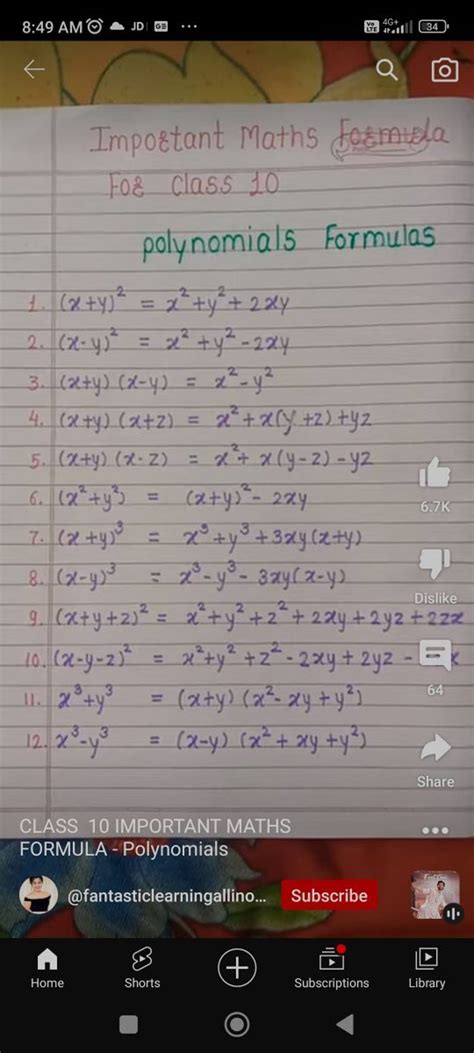 8:49 AM JD GE ...
Vo LTE 4G+ 34
Important Maths Formula
For Class 10
polynomials Formulas
1. (x+y)² = x²+y²+2xy
2. (x-y)² = x²+y²-2xy
3. (x+y) (x-y) = x²-y²
4. (x+y) (x+z) = x²+x(y+z)+yz
5. (x+y) (x-z) = x²+ x(y-z)-yz
6. (x²+y²) = (x+y)²- 2xy
7. (x+y)³ = x³+y³+3xy(x+y)
8. (x-y)³ = x³-y³-3xy(x-y)
9. (x+y+z)² = x²+y²+z²+2xy+2yz+2zx
10. (x-y-z)² = x²+y²+z²-2xy+2yz- x
11. x³+y³ = (x+y) (x²-xy+y²)
12. x³-y³ = (x-y) (x²+xy+y²)
6.7K
Dislike
64
Share
CLASS 10 IMPORTANT MATHS
FORMULA - Polynomials
@fantasticlearningallino... Subscribe
Home Shorts Subscriptions Library